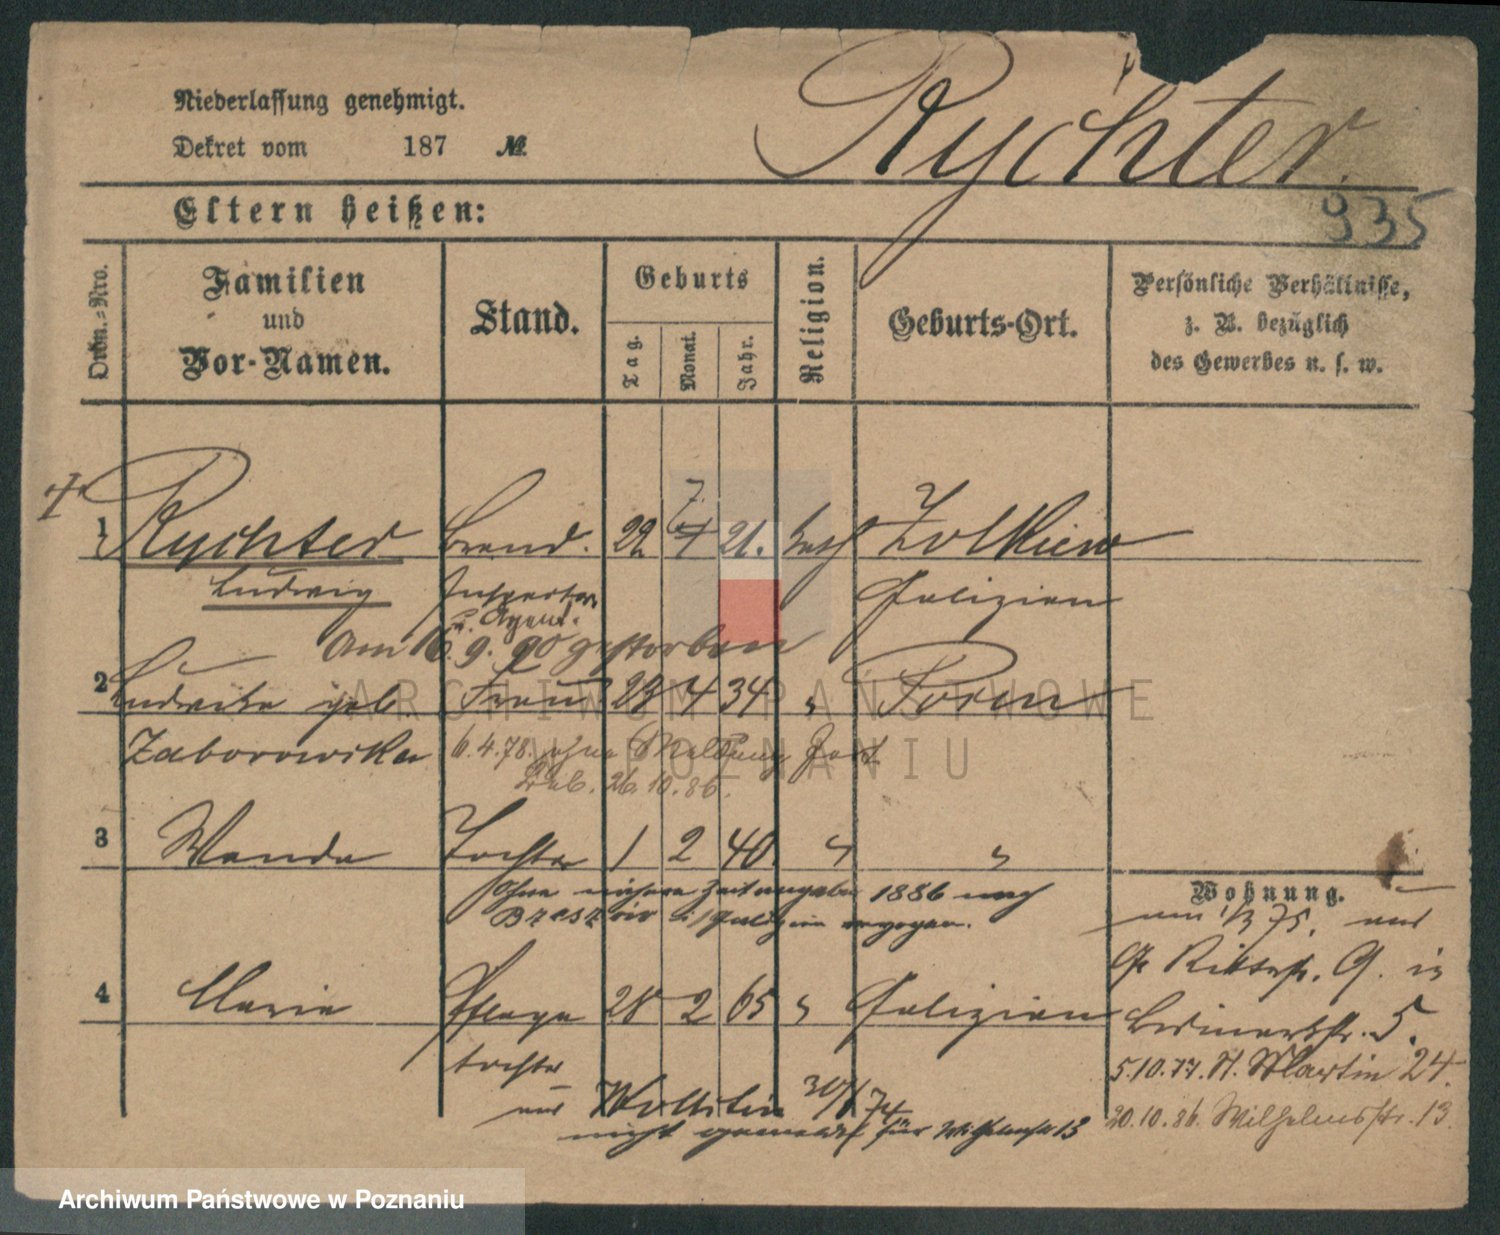 Niederlassung genehmigt.
Dekret vom 187 №
Rychter
935
Eltern heißen:
Ordn.-Nro.
Familien
und
Vor-Namen.
Stand.
Geburts
Tag.
Monat.
Jahr.
Religion.
Geburts-Ort.
Persönliche Verhältnisse,
z. B. bezüglich
des Gewerbes u. s. w.
1 Rychter Brand. 22 7 21. kath Zolkiew
Ludwig Inspector Galizien
u. Agent.
Am 16. 9. 90 gestorben
2 Ludwika geb Frau 23 4 34 " Posen
Zaborowska 6.4.78. ohne Meldung fort
26.10.86.
3 Wanda Tochter 1 2 40. " "
Ohne nähere Zeitangabe 1886 nach
Brzeszów i/Galizien verzogen.
4 Maria Pflege 28 2 65 " Galizien
tochter
aus Wollstein 30/1 74
nicht gemeldet für Wilhelmstr 13
Wohnung.
am 1/3 75. aus
Gr Ritterstr. 9. in
Bismarkstr. 5.
5.10.77. St. Martin 24.
20.10.86. Wilhelmsstr. 13.
ARCHIWUM PAŃSTWOWE
W POZNANIU
Archiwum Państwowe w Poznaniu